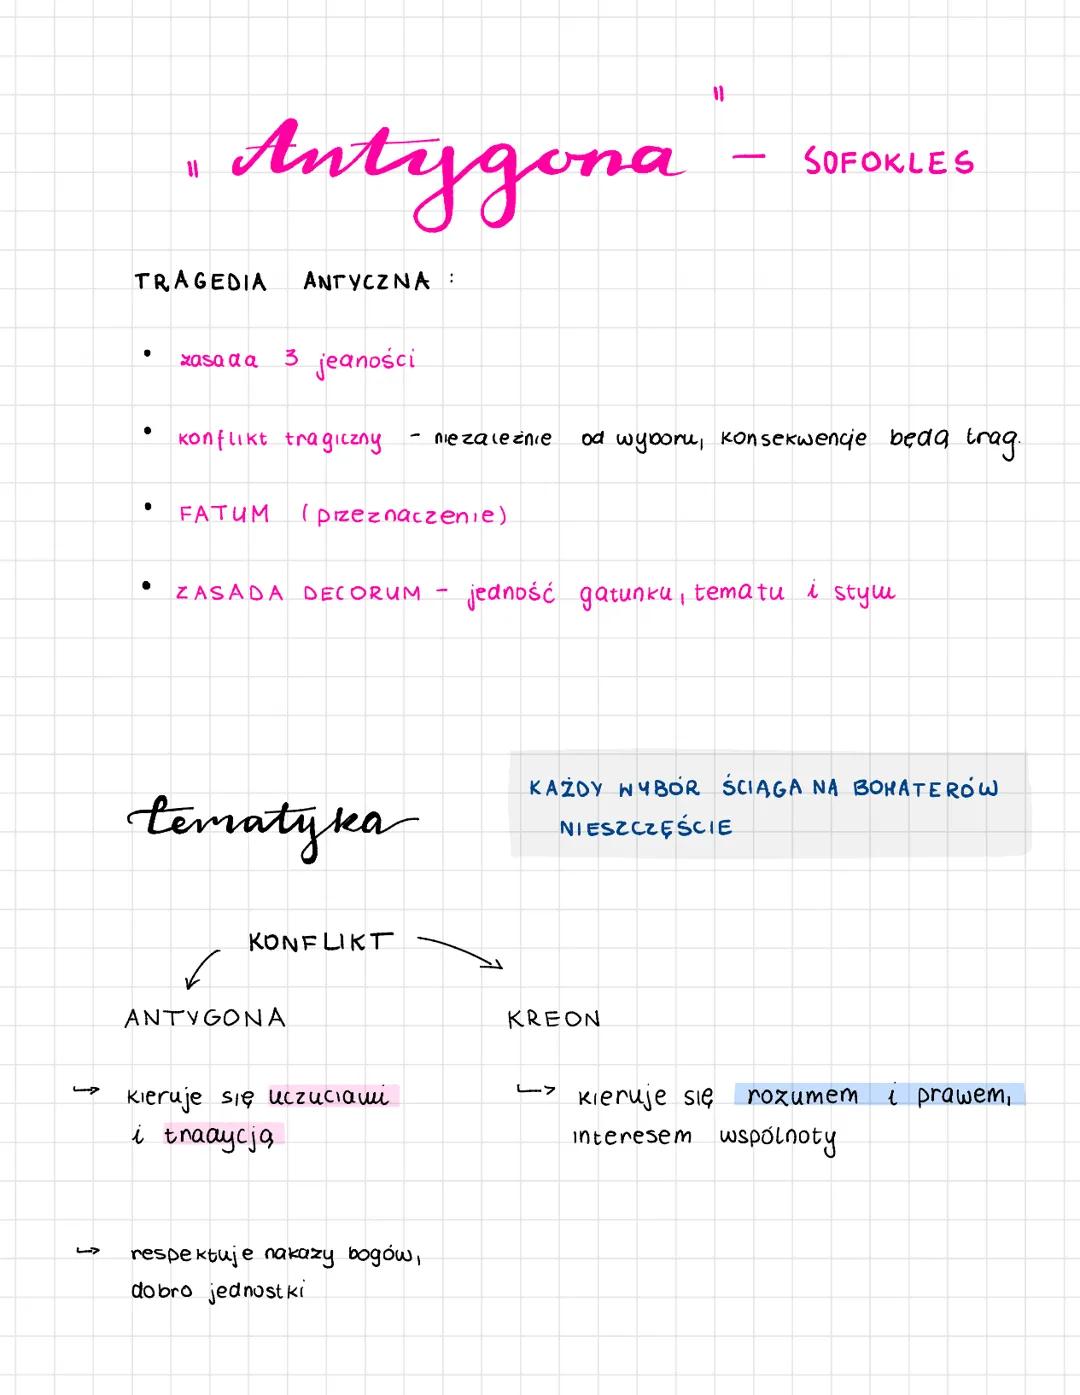 "Antygona" - SOFOKLES
TRAGEDIA ANTYCZNA :
• zasada 3 jedności
• konflikt tragiczny - niezależnie od wyboru, konsekwencje będą trag.
• FATUM (przeznaczenie)
• ZASADA DECORUM - jedność gatunku, tematu i stylu
tematyka
KAŻDY WYBÓR ŚCIĄGA NA BOHATERÓW
NIESZCZĘŚCIE
KONFLIKT
ANTYGONA
KREON
↪ kieruje się uczuciami
i tradycją
↪ respektuje nakazy bogów,
dobro jednostki
↪ kieruje się rozumem i prawem,
interesem wspólnoty